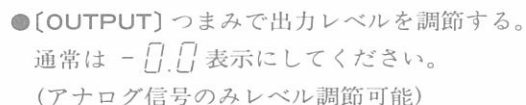 ●〔OUTPUT〕つまみで出力レベルを調節する。
通常は -0.0 表示にしてください。
(アナログ信号のみレベル調節可能)